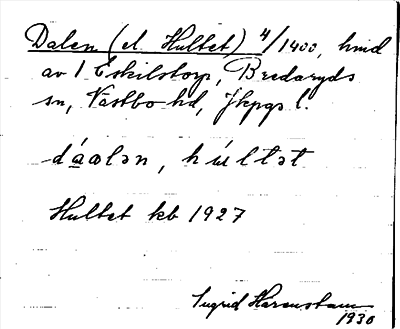 Dalen (el. Hultet) 4/1400, hmd
av 1 Eskilstorp, Bredaryds
sn, Västbo hd, Jkpgs l.
dáalən, húltət
Hultet kb 1927
Ingrid Harenstam
1930